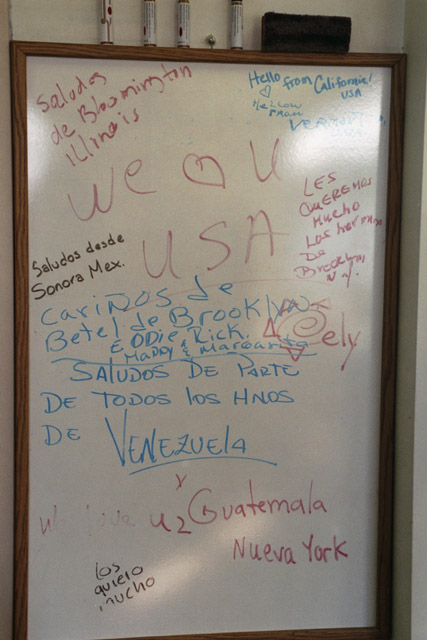 Saludos
de Bloomington
Illinois
Hello from California!
♡ USA
Hellow
From
VERMONT
we ♡ U
USA
LES
QUEREMOS
Mucho
Los
De
Brooklyn
N.Y.
Saludos desde
Sonora Mex.
CARIÑOS de
Betel de Brooklyn
EDDIE, Rick.
MADDY & MARGARITA
@ely
SALUDOS DE PARTE
DE TODOS los HNOS
DE VENEZUELA
we love u 2
y Guatemala
Nueva York
Los
quiero
mucho